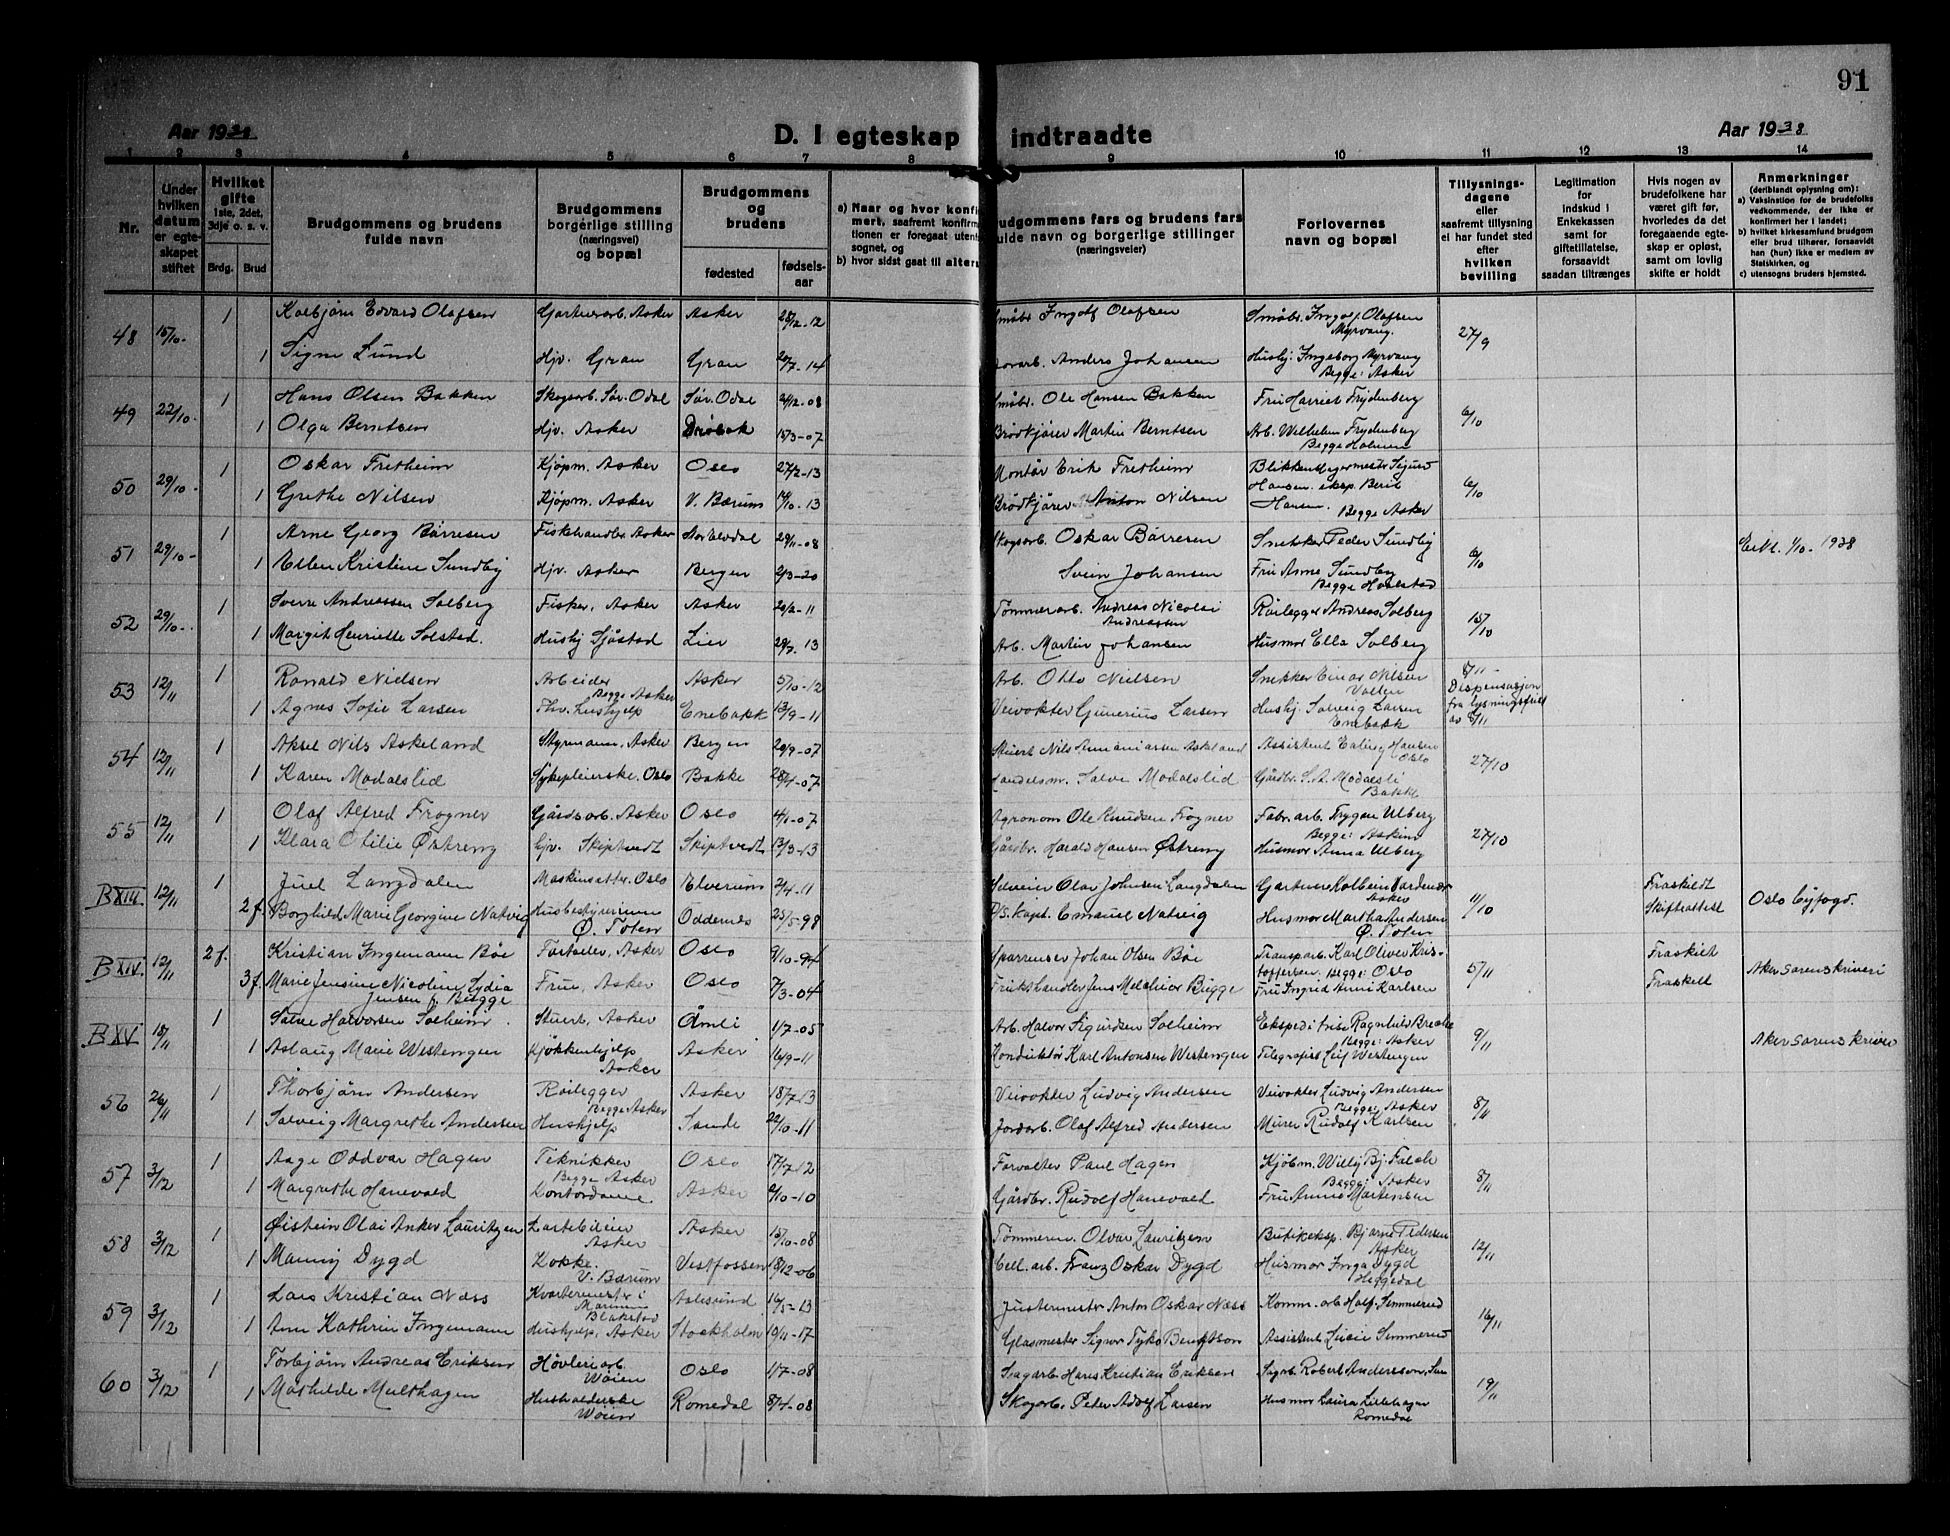 91
Aar 1938
D. I egteskap indtraadte
Aar 1938
1 2 3 4 5 6 7 8 9 10 11 12 13 14
Nr.
Under hvilken datum er egte-skapet stiftet
Hvilket gifte 1ste, 2det, 3dje o. s. v.
Brdg. Brud
Brudgommens og brudens fulde navn
Brudgommens borgerlige stilling (næringsvei) og bopæl
Brudgommens og brudens
fødested
fødsels-aar
a) Naar og hvor konfi
merk, saafremt konfirm
tionen er foregaat utent
sognet, og
b) hvor sidst gaat til alters
udgommens fars og brudens fars
fulde navn og borgerlige stillinger
(næringsveier)
Forlovernes navn og bopæl
Tillysnings-dagene eller saafremt tillysning ei har fundet sted efter hvilken bevilling
Legitimation for indskud i Enkekassen samt for giftetillatelse, forsaavidt saadan tiltrænges
Hvis nogen av brudefolkene har været gift før, hvorledes da det foregaaende egte-skap er opløst, samt om lovlig skifte er holdt
Anmerkninger
(deriblandt oplysning om):
a) Vaksination for de brudefolks vedkommende, der ikke er konfirmert her i landet;
b) hvilket kirkesamfund brudgom eller brud tilhører, forsaavidt han (hun) ikke er medlem av Statskirken, og
c) utensogns bruders hjemsted.
48 15/10- 1 Kolbjørn Edvard Olafsen Gartnerarb. Asker Asker 28/12-12 Småbr. Ingolf Olafsen Småbr. Ingolf Olafsen Myrvang. 27/9
1 Signe Lund Hjv. Gran Gran 20/7-14 Anders Johansen Hushj. Ingeborg Myrvang Begge: Asker
49 22/10- 1 Hans Olsen Bakken Skogsarb. Sør-Odal Sør-Odal 21/12-08 Småbr. Ole Hansen Bakken Fru Harriet Frydenberg 6/10
1 Olga Berntsen Hjv. Asker Drøbak 15/3-07 Brødkjører Martin Berntsen Arb. Wilhelm Frydenberg Begge Holmen
50 29/10- 1 Oskar Fretheim Kjøpm. Asker Oslo 27/2-13 Montør Erik Fretheim Blikkenslagermester Sigurd 6/10
1 Grethe Nilsen Kjøpm. Asker V. Bærum 14/10-13 Brødkjører Anton Nilsen Hansen. eksp. Berit Hansen. Begge Asker
51 29/10- 1 Arne Georg Børresen Fiskehandler Asker 29/11-08 Skogsarb. Oskar Børresen Snekker Peder Sundby 6/10 1/10-1938
1 Ellen Kristine Sundby Hjv. Asker Bergen 2/3-20 Svein Johansen Fru Arne Sundby Begge Holmstad
52 29/10- 1 Sverre Andreassen Solberg Fisker, Asker Asker 20/2-11 Tømmerarb. Andreas Nicolai Andreassen Rørlegger Andreas Solberg 15/10
1 Margit Henriette Solstad. Hushj Sjåstad Lier 29/7.13 Arb. Martin Johansen Husmor Ella Solberg
53 12/11 1 Ronald Nielsen Arbeider Begge Asker Asker 5/10-12 Arb. Otto Nielsen Snekker Einar Nilsen Vollen 8/11- Dispensasjon
1 Agnes Sofie Larsen Thv. hushjelp Enebakk 13/9-11 Veivokter Gunerius Larsen Hushj. Solveig Larsen Enebakk fra lysningsfrist av 8/11
54 12/11 1 Aksel Nils Askeland Styrmann, Asker Bergen 20/9-07 Stuert Nils Ananiassen Askeland Assistent Hansen Oslo 27/10
1 Karen Modalslid Sykepleierske. Oslo Bakke 28/4-07 Handelsm. Salve Modalslid Gårdbr. S. A. Modalsli Bakke
55 12/11 1 Olaf Alfred Frogner Gårdsarb. Asker Oslo 4/1-07 Agronom Ole Knudsen Frogner Fabr. arb. Trygve Ulberg Begge: Askim 27/10
1 Klara Otilie Østreng Hjv. Skiptvedt Skiptvedt 13/3-13 Gårdbr. Harald Hansen Østreng Husmor Anna Ulberg
B XIII 12/11 1 Juel Langdalen Maskinsetter. Oslo Elverum 2/4-11 Selveier Olav Johnsen Langdalen Gartner Kolbein Asker 11/10 Fraskildt Oslo byfogd.
2 f. Borghild Marie Georgine Natvig Husbestyrerinne Ø. Toten Oddernes 25/5-98 D/S. Kapt. Emanuel Natvig Husmor Martha Andersen Ø. Toten Skifteattest
B XIV. 12/11 2 f. Kristian Ingemann Bøe Forteller, Asker Oslo 9/10-94 Sparrenser Johan Olsen Bøe Transparb. Karl Oliver Kris- 5/11 Fraskilt Aker Sorenskriveri
3 f. Marie Jensine Nicoline Lydia Jensen f. Bugge Frue, Asker Oslo 7/3-04 Frukthandler Jens Melchior Bugge toffersen. Begge: Oslo Fru Ingrid Anni Karlsen Fraskilt
B XV 18/11 1 Salve Halvorsen Solheim. Stuert, Asker Åmli 1/7-05 Arb. Halvor Sigurdsen Solheim Ekspeditrise Ragnhild Begge: Asker 9/11 Aker Sorenskriver
1 Aslaug Marie Westengen Kjøkkenhjelp Asker Asker 16/9-11 Konduktør Karl Antonsen Westengen Telegrafist Leif Westengen
56 26/11 1 Thorbjørn Andersen Rørlegger Begge Asker Asker 18/7-13 Veivokter Ludvig Andersen Veivokter Ludvig Andersen Begge: Asker 8/11
1 Solveig Margrethe Andersen Hushjelp Sande 22/10-11 Jordarb. Olaf Alfred Andersen Murer Rudolf Karlsen
57 3/12 1 Aage Oddvar Hagen Teknikker Begge Asker Oslo 17/7-12 Forvalter Paul Hagen Kjøbm. Willy Bj. Falch Begge: Asker 8/11
1 Margrethe Hanevold Kontordame Asker 2/10-10 Gårdbr. Rudolf Hanevold Fru Anna Martensen
58 3/12 1 Øistein Olai Anker Lauritzen Lastebileier Asker Asker 15/10-08 Tømmerm. Olvar Lauritzen Butikeksp. Bjarne Pedersen Asker 12/11
1 Manny Dygd Kokke. V. Bærum Vestfossen 18/12-06 Cell. arb. Franz Oskar Dygd Husmor Inga Dygd Heggedal
59 3/12 1 Lars Kristian Næss Kvartermester i Marinen Blakstad Aalesund 16/5-13 Justermester Anton Oskar Næss Komm. arb Half. Simmerud 16/11
1 Ann Kathrin Ingemann Hushjelp, Asker Stockholm 10/11-17 Glasmester Signor Tyko Bengtson Assistent Lucie Simmerud
60 3/12 1 Torbjørn Andreas Eriksen Høvleriarb. Wøien Oslo 1/7-08 Sagarb. Hans Kristian Eriksen Sagarb. Robert Andersson, 19/11
1 Mathilde Multhagen Husholderske Wøien Romedal 8/4-08 Skogarb. Peter Adolf Larsen Husmor Laura Lillehagen Romedal